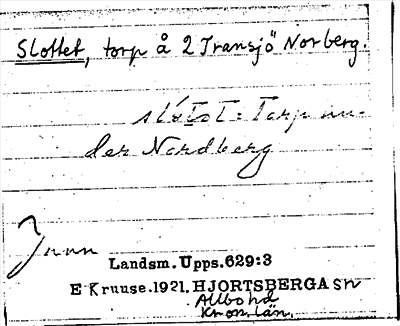 Slottet, torp å 2 Transjö Norberg.
slo̍tət: Torp un-
der Nordberg
Landsm. Upps. 629:3
E Kruuse. 1921. HJORTSBERGA sn
Allbo hd
Kron. län.